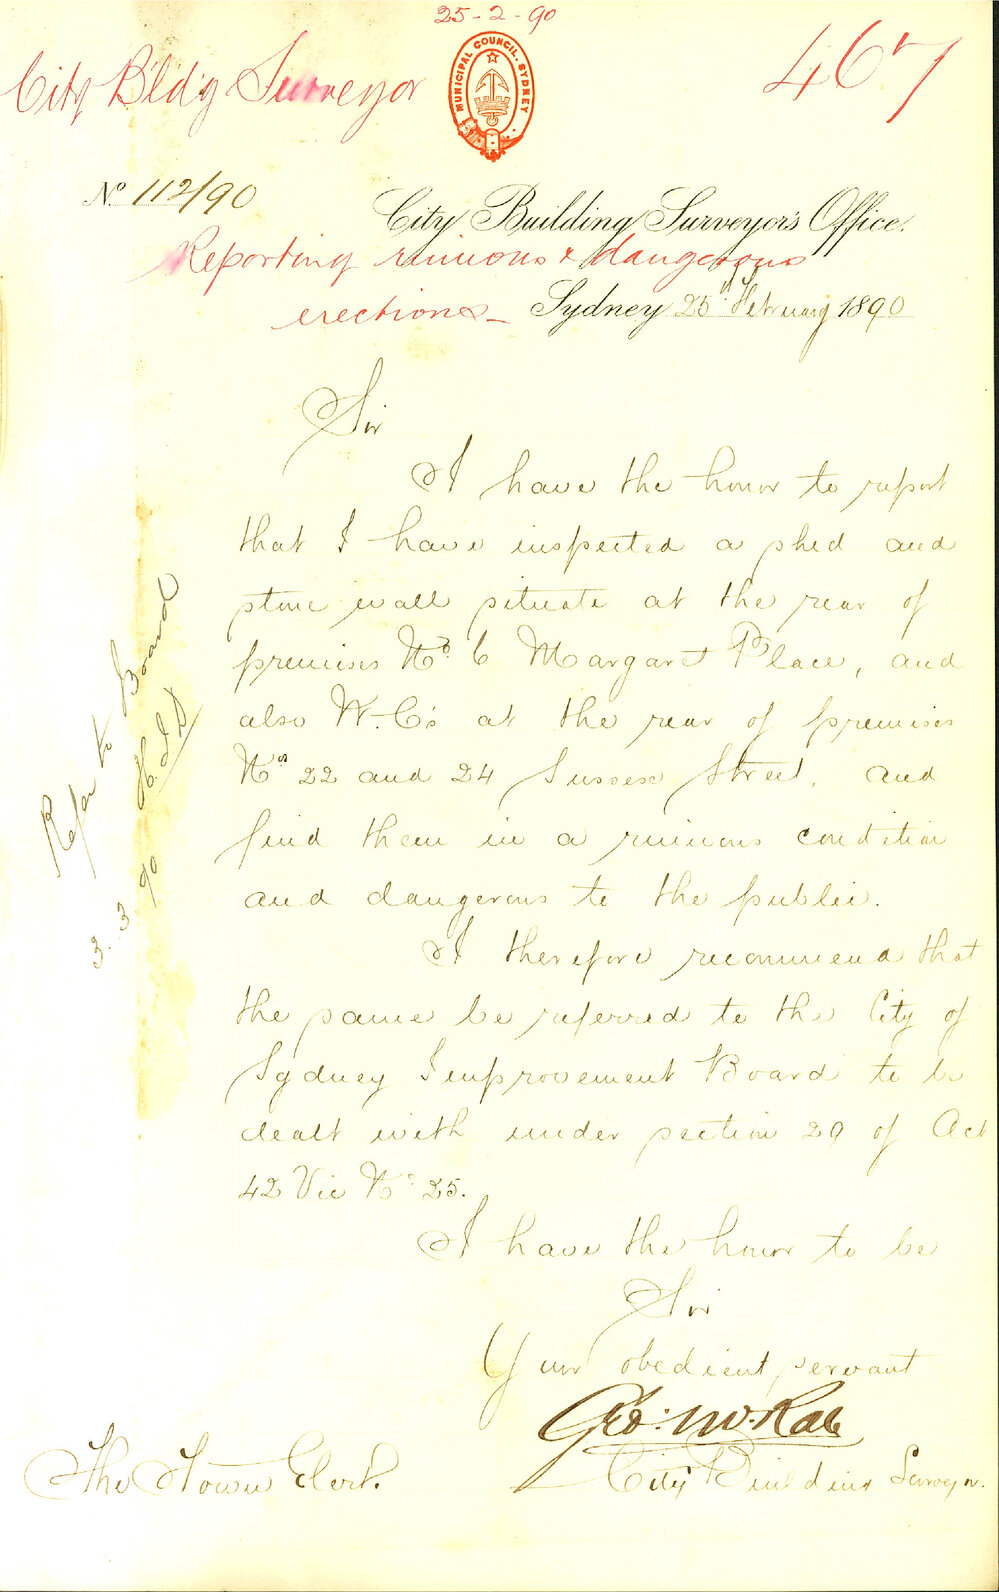 25-2-90
City Bldg Surveyor
MUNICIPAL COUNCIL. SYDNEY
467
No 112/90
City Building Surveyor's Office.
Reporting ruinous & dangerous
erections—
Sydney 25th February 1890
Sir
I have the honor to report
that I have inspected a shed and
stone wall situate at the rear of
premises No. 6 Margaret Place, and
also W.C's at the rear of premises
Nos 22 and 24 Sussex Street, and
find them in a ruinous condition
and dangerous to the public.
I therefore recommend that
the same be referred to the City of
Sydney Improvement Board to be
dealt with under section 29 of Act
42 Vic No. 25.
I have the honor to be
Sir
Your obedient servant
Geo: McRae
City Building Surveyor.
The Town Clerk.
Refer to Board
3.3.90